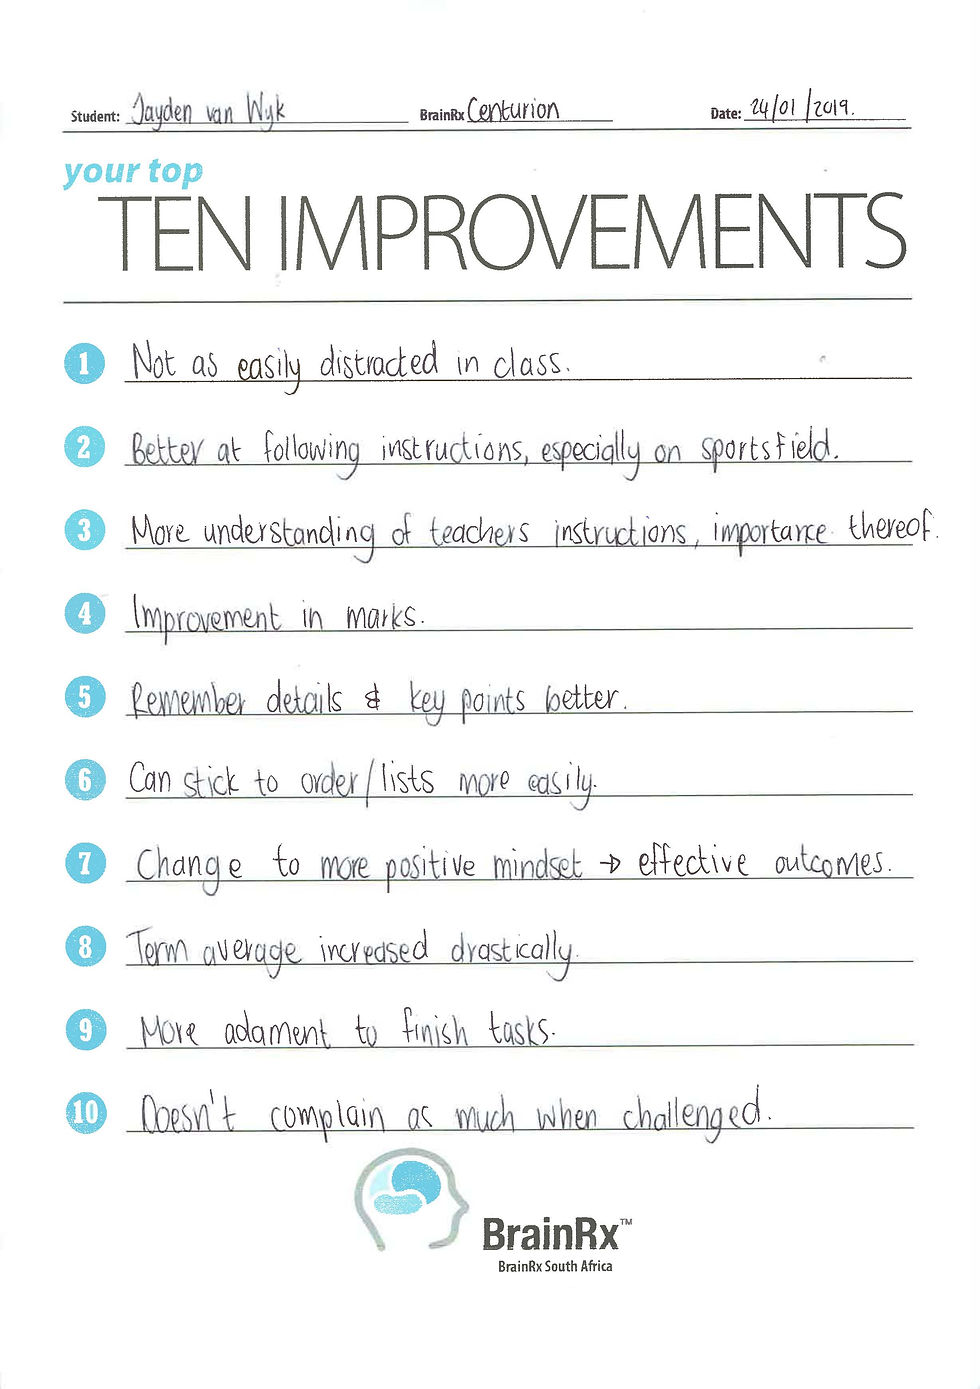 Student: Jayden van Wyk BrainRx Centurion Date: 24/01/2019.
your top
TEN IMPROVEMENTS
1 Not as easily distracted in class.
2 Better at following instructions, especially on sportsfield.
3 More understanding of teachers instructions, importance thereof.
4 Improvement in marks.
5 Remember details & key points better.
6 Can stick to order/lists more easily.
7 Change to more positive mindset → effective outcomes.
8 Term average increased drastically.
9 More adament to finish tasks.
10 Doesn't complain as much when challenged.
BrainRx™
BrainRx South Africa